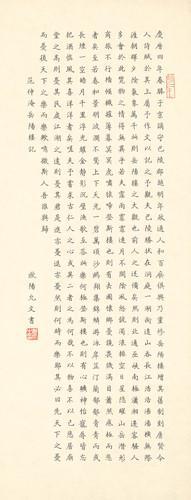 慶曆四年春滕子京謫守巴陵郡越明年政通人和百廢俱興乃重修岳陽樓增其舊制刻唐賢今
人詩賦於其上屬予作文以記之予觀夫巴陵勝狀在洞庭一湖銜遠山吞長江浩浩湯湯橫無際
涯朝暉夕陰氣象萬千此則岳陽樓之大觀也前人之述備矣然則北通巫峽南極瀟湘遷客騷人
多會於此覽物之情得無異乎若夫霪雨霏霏連月不開陰風怒號濁浪排空日星隱耀山岳潛形
商旅不行檣傾楫摧薄暮冥冥虎嘯猿啼登斯樓也則有去國懷鄉憂讒畏譏滿目蕭然感極而悲
者矣至若春和景明波瀾不驚上下天光一碧萬頃沙鷗翔集錦鱗游泳岸芷汀蘭郁郁青青而或
長煙一空皓月千里浮光躍金靜影沉璧漁歌互答此樂何極登斯樓也則有心曠神怡寵辱皆忘
把酒臨風其喜洋洋者矣嗟夫予嘗求古仁人之心或異二者之為何哉不以物喜不以己悲居廟
堂之高則憂其民處江湖之遠則憂其君是進亦憂退亦憂然則何時而樂耶其必曰先天下之憂
而憂後天下之樂而樂歟噫微斯人吾誰與歸
范仲淹岳陽樓記
歐陽允文書